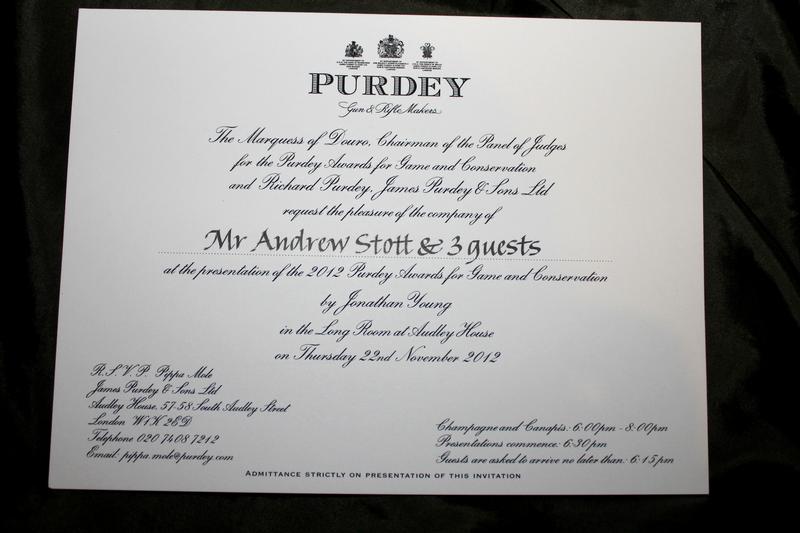 PURDEY
Gun & Rifle Makers
The Marquess of Douro, Chairman of the Panel of Judges
for the Purdey Awards for Game and Conservation
and Richard Purdey, James Purdey & Sons Ltd
request the pleasure of the company of
Mr Andrew Stott & 3 guests
at the presentation of the 2012 Purdey Awards for Game and Conservation
by Jonathan Young
in the Long Room at Audley House
on Thursday 22nd November 2012
R.S.V.P. Pippa Mole
James Purdey & Sons Ltd
Audley House, 57-58 South Audley Street
London W1K 2ED
Telephone 020 7408 7212
Email: pippa.mole@purdey.com
Champagne and Canapés: 6:00pm - 8:00pm
Presentations commence: 6:30pm
Guests are asked to arrive no later than: 6:15pm
ADMITTANCE STRICTLY ON PRESENTATION OF THIS INVITATION